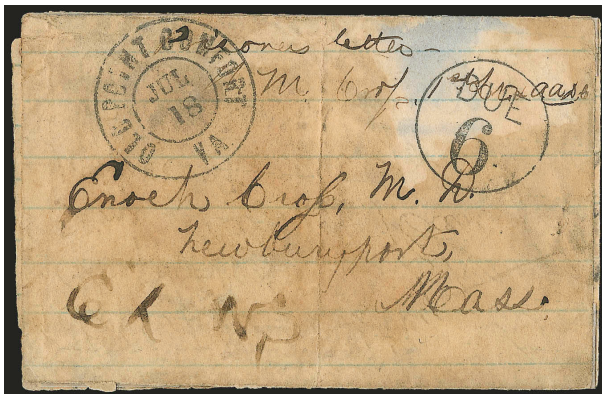 OLD POINT COMFORT
VA
JUL
18
Prisoners letter -
M. Croſs.
DUE
6
Enoch Croſs, M. D.
Newburyport,
Mass.